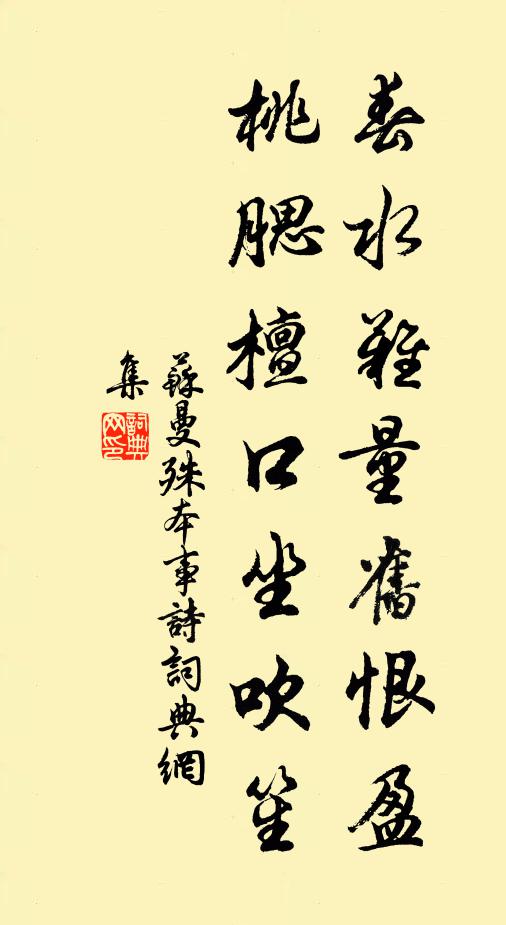 春水難量舊恨盈
桃腮檀口坐吹笙
蘇曼殊本事詩詞典網
集
詞典
网印